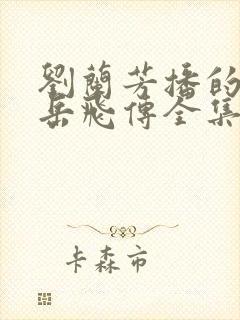 劉蘭芳播的
岳飛傳全集
卡森市